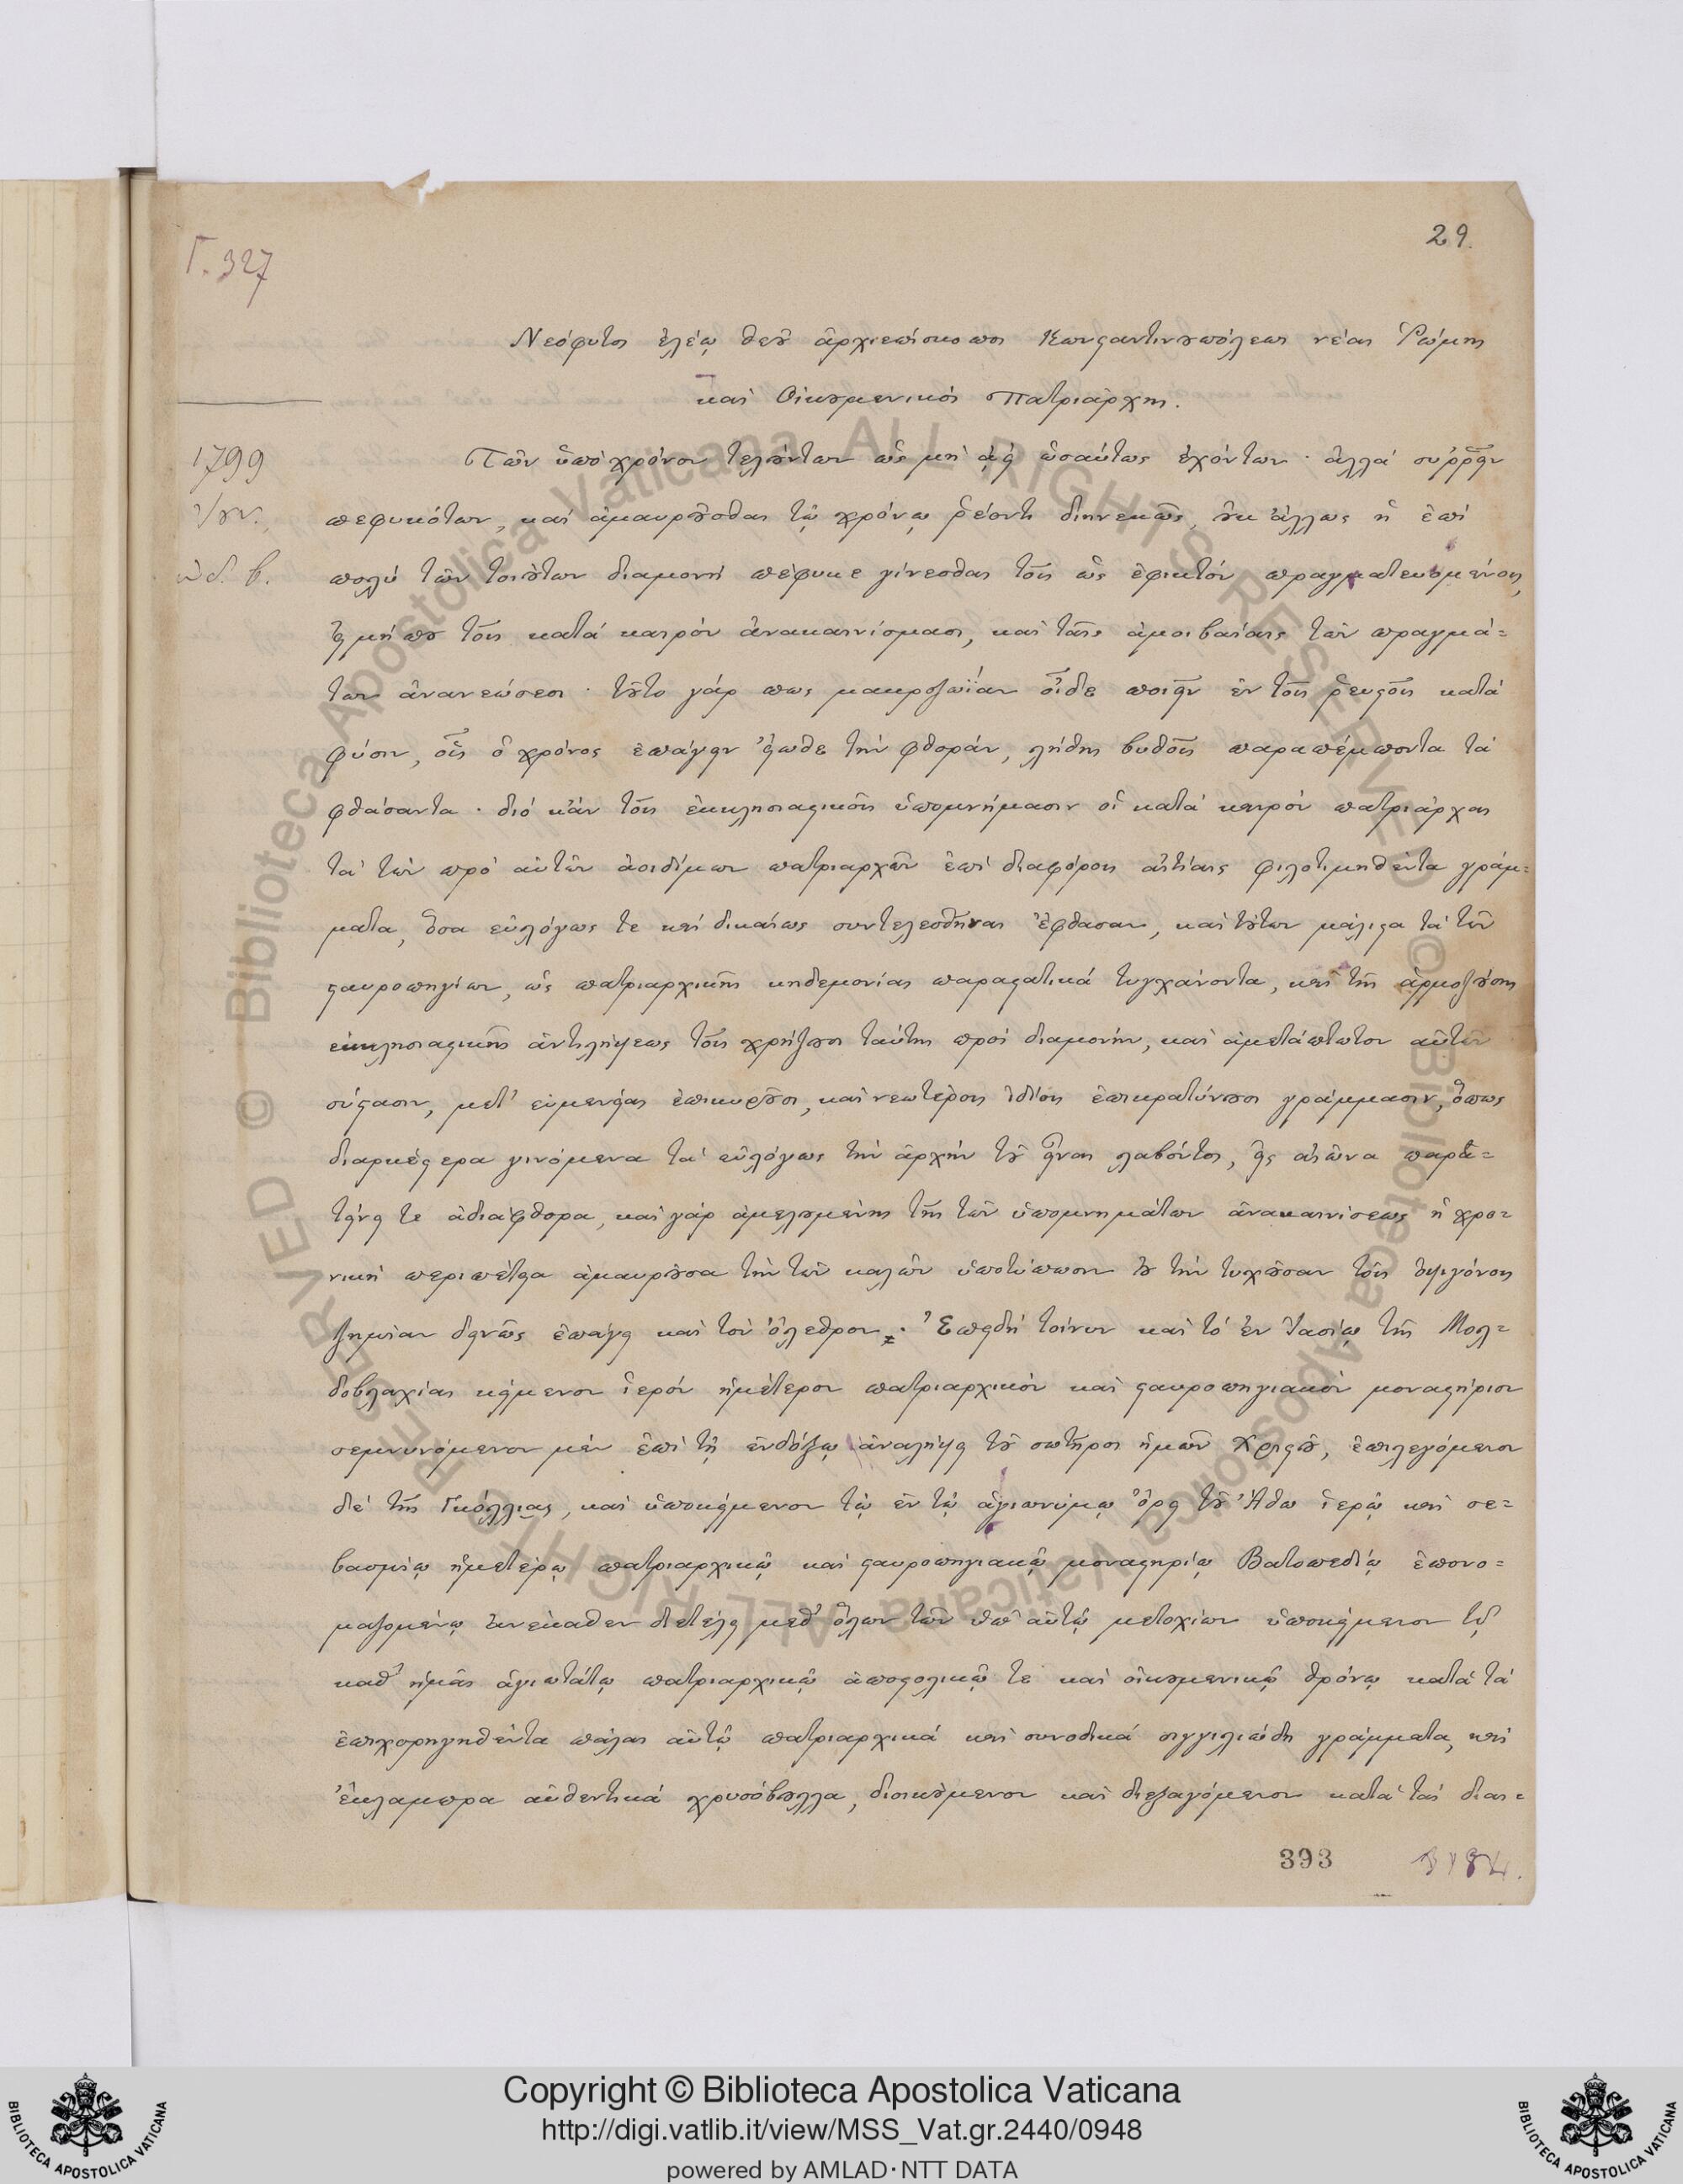 29.
Γ. 327
Νεόφυτος ἐλέῳ θεοῦ ἀρχιεπίσκοπος Κωνσταντινουπόλεως νέας Ῥώμης
καὶ Οἰκουμενικὸς Πατριάρχης.
1799
Ἰουν.
ἰνδ. β.
Τῶν ὑπὸ χρόνον τελούντων ὡς μὴ ἀεὶ ὡσαύτως ἐχόντων· ἀλλὰ συῤῥεῖν
πεφυκότων, καὶ ἀμαυροῦσθαι τῷ χρόνῳ ῥέοντι διηνεκῶς, οὐκ ἄλλως ἡ ἐπὶ
πολὺ τῶν τοιούτων διαμονὴ πέφυκε γίνεσθαι τοῖς ὡς ἐφικτὸν πραγματευομένοις,
εἰ μή που τοῖς κατὰ καιρὸν ἀνακαινίσμασι, καὶ ταῖς ἀμοιβαίαις τῶν πραγμά=
των ἀνανεώσεσι· τοῦτο γάρ πως μακροζωΐαν οἶδε ποιεῖν ἐν τοῖς ῥευστοῖς κατὰ
φύσιν, οἷς ὁ χρόνος ἐπάγειν εἴωθε τὴν φθοράν, λήθης βυθοῖς παραπέμποντα τὰ
φθάσαντα· διὸ κἀν τοῖς ἐκκλησιαστικοῖς ὑπομνήμασιν οἱ κατὰ καιρὸν πατριάρχαι
τὰ τῶν πρὸ αὐτῶν ἀοιδίμων πατριαρχῶν ἐπὶ διαφόροις αἰτίαις φιλοτιμηθέντα γράμ=
ματα, ὅσα εὐλόγως τε καὶ δικαίως συντελεσθῆναι ἔφθασαν, καὶ τούτων μάλιστα τὰ τῶν
σταυροπηγίων, ὡς πατριαρχικῆς κηδεμονίας παραστατικὰ τυγχάνοντα, καὶ τῆς ἁρμοζούσης
ἐκκλησιαστικῆς ἀντιλήψεως τοῖς χρῄζουσι ταύτης πρὸς διαμονήν, καὶ ἀμετάπτωτον αὐτῶν
σύστασιν, μετ' εὐμενείας ἐπικυροῦσι, καὶ νεωτέροις ἰδίοις ἐπικρατύνουσι γράμμασιν, ὅπως
διαρκέστερα γινόμενα τὰ εὐλόγως τὴν ἀρχὴν τοῦ εἶναι λαβόντος, εἰς αἰῶνα παρα=
τείνῃ τε ἀδιάφθορα, καὶ γὰρ ἀμελουμένης τῆς τῶν ὑπομνημάτων ἀνακαινίσεως ἡ χρο=
νικὴ περιπέτεια ἀμαυροῦσα τὴν τῶν καλῶν ὑποτύπωσιν οὐ τὴν τυχοῦσαν τοῖς ὀψιγόνοις
ζημίαν δεινῶς ἐπάγει καὶ τὸν ὄλεθρον. Ἐπειδὴ τοίνυν καὶ τὸ ἐν Ἰασίῳ τῆς Μολ=
δοβλαχίας κείμενον ἱερὸν ἡμέτερον πατριαρχικὸν καὶ σταυροπηγιακὸν μοναστήριον
σεμνυνόμενον μὲν ἐπὶ τῇ ἐνδόξῳ ἀναλήψει τοῦ σωτῆρος ἡμῶν Χριστοῦ, ἐπιλεγόμενον
δὲ τῆς Γκόλλιας, καὶ ὑποκείμενον τῷ ἐν τῷ ἁγιωνύμῳ ὄρει τοῦ Ἄθω ἱερῷ καὶ σε=
βασμίῳ ἡμετέρῳ πατριαρχικῷ καὶ σταυροπηγιακῷ μοναστηρίῳ Βατοπεδίῳ ἐπονο=
μαζομένῳ ἀνέκαθεν διετέλει μεθ' ὅλων τῶν ὑπ' αὐτῷ μετοχίων ὑποκείμενον τῷ
καθ' ἡμᾶς ἁγιωτάτῳ πατριαρχικῷ ἀποστολικῷ τε καὶ οἰκουμενικῷ θρόνῳ κατὰ τὰ
ἐπιχορηγηθέντα πάλαι αὐτῷ πατριαρχικὰ καὶ συνοδικὰ σιγγιλιώδη γράμματα, καὶ
ἔκλαμπρα αὐθεντικὰ χρυσόβουλλα, διοικούμενον καὶ διεξαγόμενον κατὰ τὰς δια=
393
Copyright © Biblioteca Apostolica Vaticana
http://digi.vatlib.it/view/MSS_Vat.gr.2440/0948
powered by AMLAD·NTT DATA
BIBLIOTECA APOSTOLICA VATICANA
BIBLIOTECA APOSTOLICA VATICANA
© Biblioteca Apostolica Vaticana ALL RIGHTS RESERVED
© Biblioteca Apostolica Vaticana ALL RIGHTS RESERVED